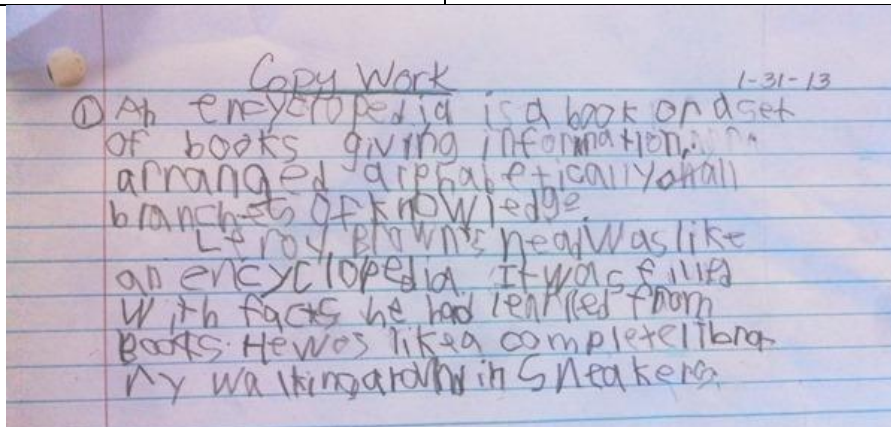 Copy Work
1-31-13
① An encyclopedia is a book or a set
of books giving information,
arranged alphabetically, on all
branches of knowledge.
Leroy Brown's head was like
an encyclopedia. It was filled
with facts he had learned from
books. He was like a complete libra
ry walking around in sneakers.